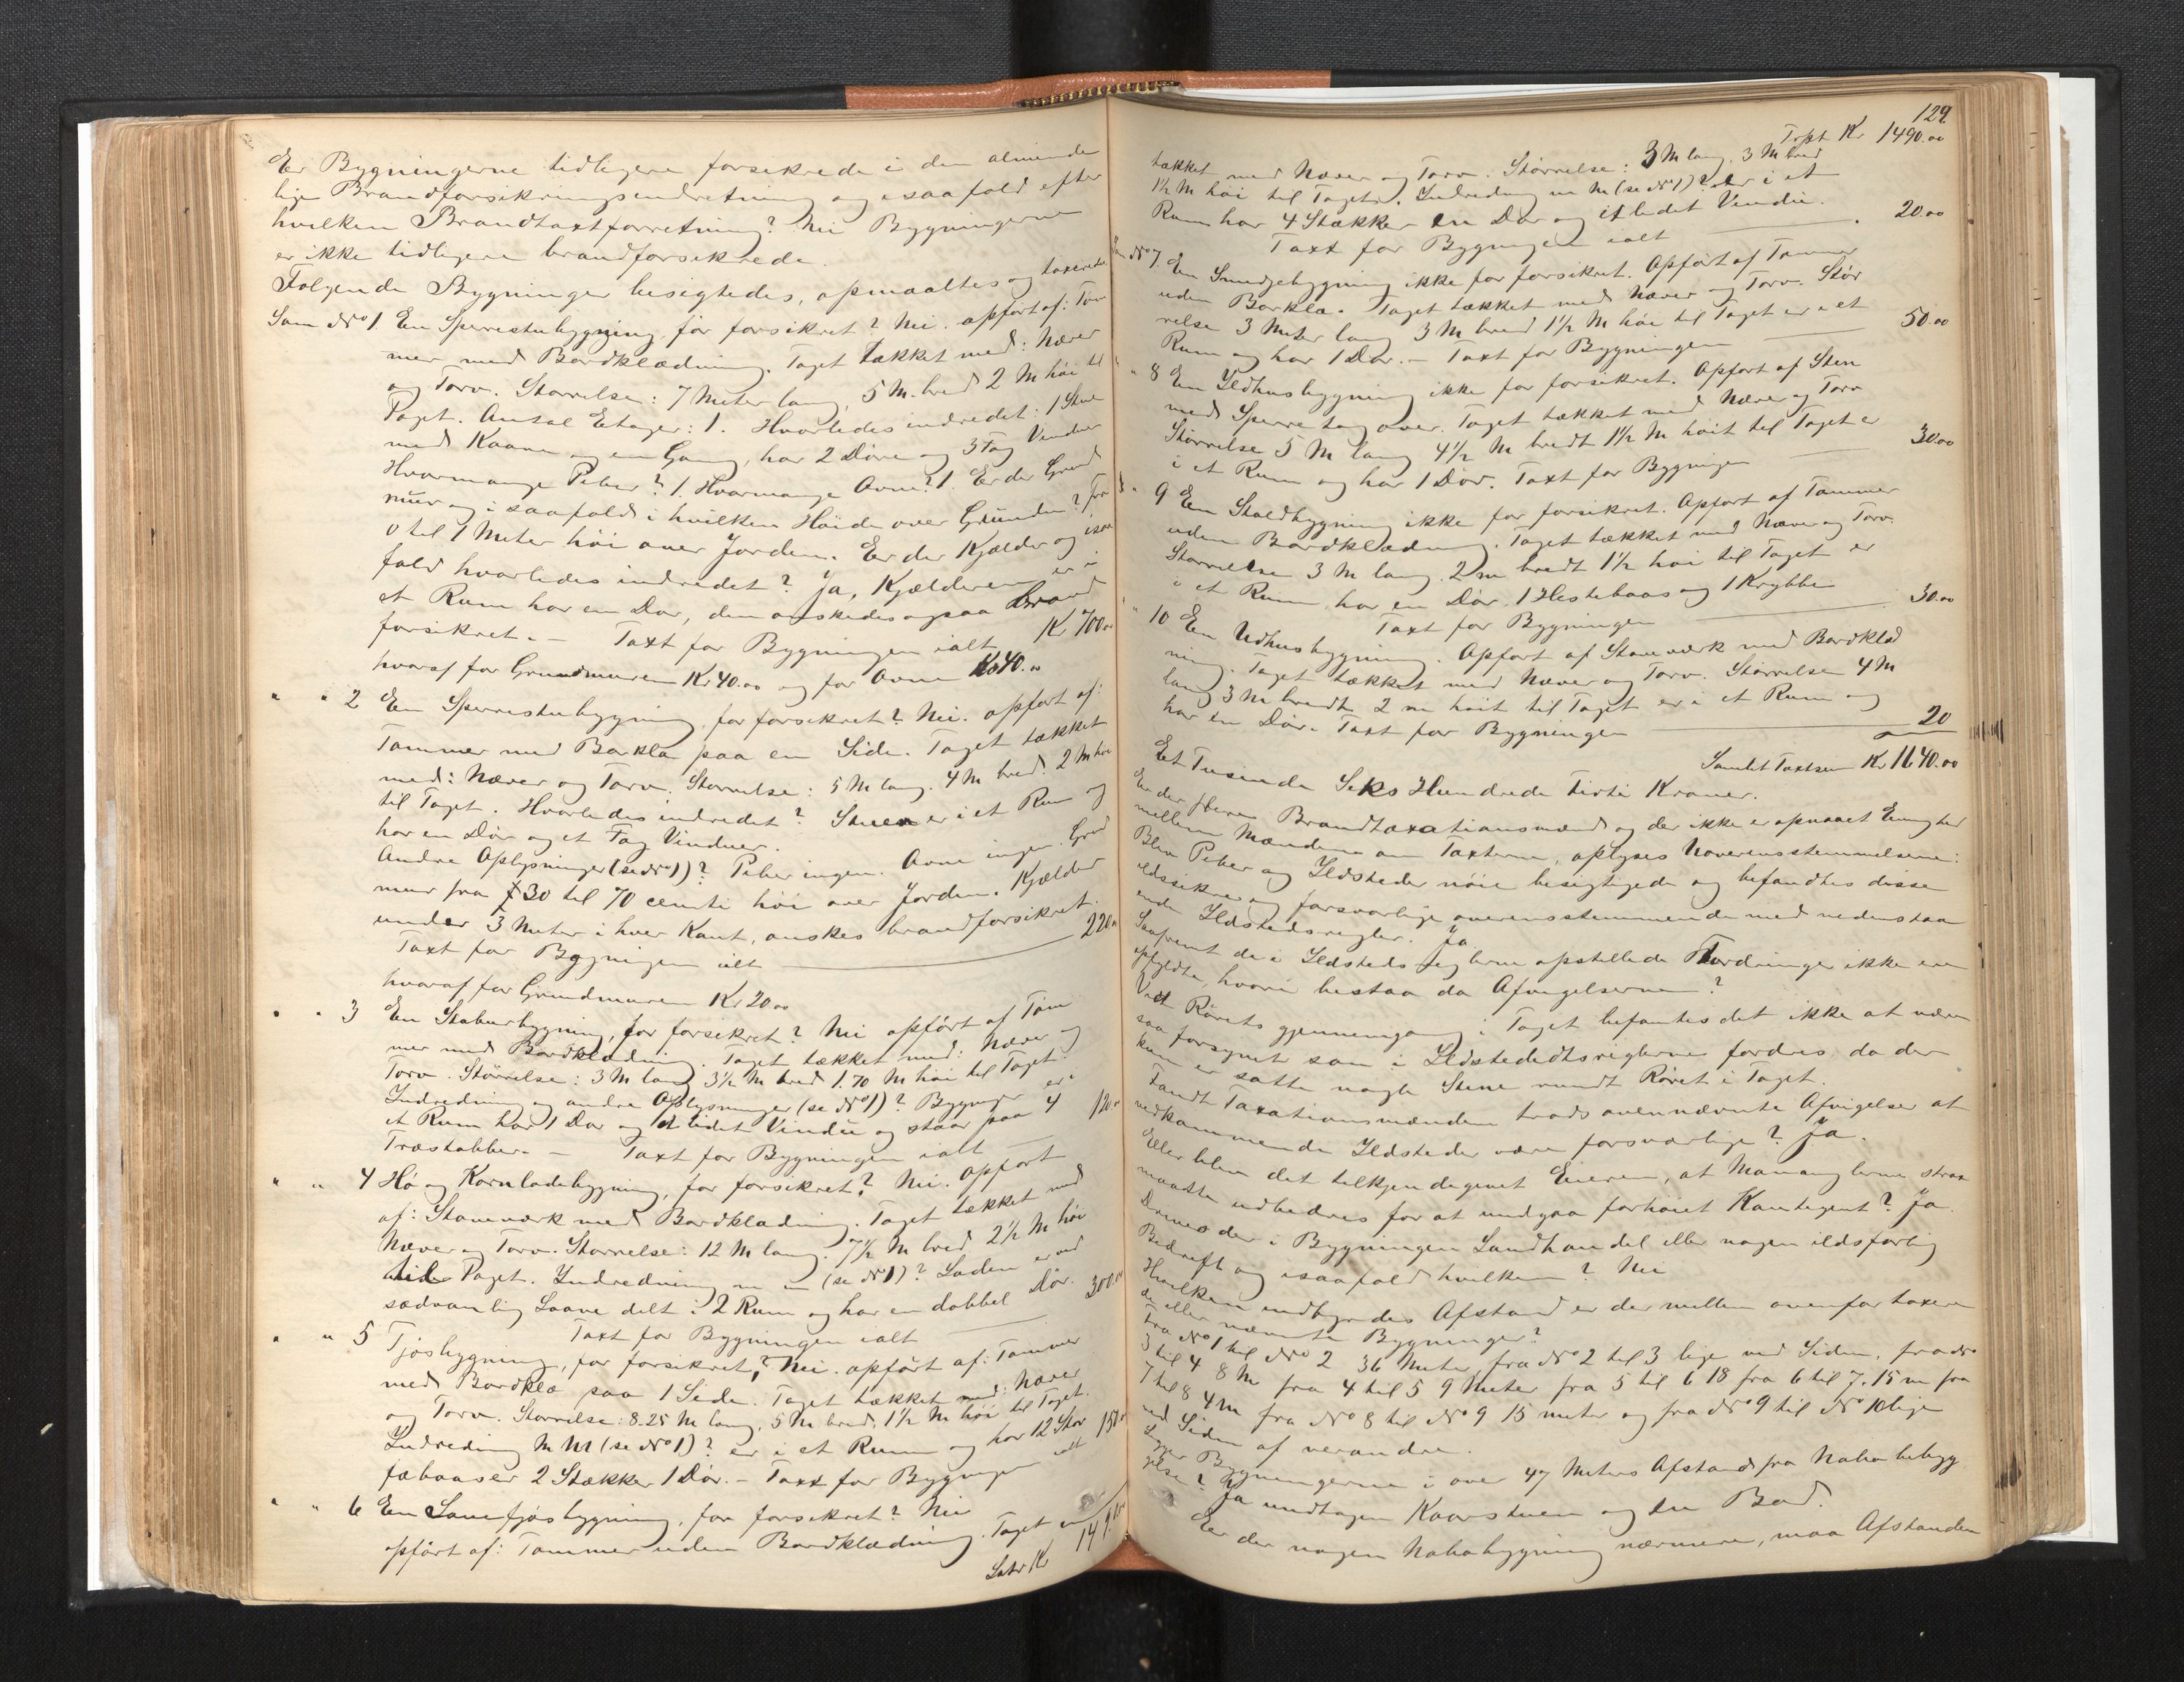 Er Bygningerne tidligere forsikrede i den alminde
lige Brandforsikringsindretning og isaafald efter
hvilken Brandtaxtforretning? Nei Bygningerne
er ikke tidligere brandforsikrede.
Følgende Bygninger besigtedes, opmaaltes og taxerede
Som No 1 En Sperrestubygning før forsikret? Nei. opført af: Tøm
mer med Bordklædning. Taget tækket med: Næver
og Torv. Størrelse: 7 Meter lang, 5 M. bred 2 M høi til
Taget. Antal Etager: 1. Hvorledes indredet: 1 Stue
med Kaave og en Gang, har 2 Døre og 3 Fag Vinduer
Hvormange Piber? 1. Hvormange Ovne? 1. Er der Grund
mur og i saafald i hvilken Høide over Grunden? Fra
0 til 1 Meter høi over Jorden. Er der Kjælder og isaa
fald hvorledes indredet? Ja, Kjælderen er i
et Rum har en Dør, den ønskedes ogsaa Brand
forsikret. — Taxt for Bygningen ialt Kr 700.00
hvoraf for Grundmuren Kr 40.00 og for Ovne Kr 40.00
" " 2 En Sperrestubygning, før forsikret? Nei. opført af:
Tømmer med Borkla paa en Side. Taget tækket
med: Næver og Torv. Størrelse: 5 M lang. 4 M bred. 2 M høi
til Taget. Hvorledes indredet? Stuen er i et Rum og
har en Dør og et Fag Vinduer.
Andre Oplysninger (se No 1)? Piber ingen. Ovne ingen. Grund
mur fra 30 til 70 cemti høi over Jorden. Kjælder
under 3 Meter i hver Kant, ønskes brandforsikret.
Taxt for Bygningen ialt — 220.00
hvoraf for Grundmuren Kr 20.00
" " 3 En Staburbygning, før forsikret? Nei opført af Tøm
mer med Bordklædning. Taget tækket med: Næver og
Torv. Størrelse: 3 M lang 3½ M bred 1.70 M høi til Taget.
Indredning og andre Oplysninger (se No 1)? Bygningen er i
et Rum har 1 Dør og et lidet Vindu og staar paa 4
Træstabber. — Taxt for Bygningen ialt — 120.00
" " 4 Hø og Kornladebygning, før forsikret? Nei. Opført
af: Staveværk med Bordklædning. Taget tækket med
Næver og Torv. Størrelse: 12 M lang. 7½ M bred 2½ M høi
til Taget. Indredning m m (se No 1)? Laden er ved
sædvanlig Laave delt i 2 Rum og har en dobbel Dør.
Taxt for Bygningen ialt — 300.00
" " 5 Fjøsbygning, før forsikret? Nei. opført af: Tømmer
med Bordkla paa 1 Side. Taget tækket med: Næver
og Torv. Størrelse: 8.25 M lang, 5 M bred, 1½ M høi til Taget.
Indredning M M (se No 1)? er i et Rum og har 12 Stor
fæbaaser 2 Stækker 1 Dør. — Taxt for Bygningen ialt 150.00
" " 6 En Sauefjøsbygning, før forsikret? Nei
opført af: Tømmer uden Bordklædning. Taget er
Lat Kr 1490.00
129
Trspt Kr 1490.00
tækket med Næver og Torv. Størrelse: 3 M lang. 3 M bred
1½ M høi til Taget. Indredning m M (se No 1)? er i et
Rum har 4 Stækker en Dør og et lidet Vindu.
Taxt for Bygningen ialt — 20.00
No 7. En Smedjebygning ikke før forsikret. Opført af Tømmer
uden Borkla. Taget tækket med Næver og Torv. Stør
relse 3 Meter lang 3 M bred 1½ M høi til Taget er i et
Rum og har 1 Dør. — Taxt for Bygningen — 50.00
" 8 En Ildhusbygning ikke før forsikret. Opført af Sten
med Sperretag over. Taget tækket med Næver og Torv
Størrelse 5 M lang 4½ M bredt 1½ M høit til Taget er
i et Rum og har 1 Dør. Taxt for Bygningen — 30.00
" 9 En Staldbygning ikke før forsikret. Opført af Tømmer
uden Bordklædning. Taget tækket med Næver og Torv.
Størrelse 3 M lang. 2 m bredt 1½ høi til Taget er
i et Rum, har en Dør. 1 Hestebaas og 1 Krybbe
Taxt for Bygningen — 30.00
" 10 En Udhusbygning. Opført af Staveværk med Bordklæd
ning. Taget tækket med Næver og Torv. Størrelse 4 M
lang 3 M bredt 2 m høit til Taget er i et Rum og
har en Dør. Taxt for Bygningen — 20
Samlet Taxtsum Kr 1640.00
Et Tusinde Seks Hundrede Firti Kroner.
Er der flere Brandtaxationsmænd og der ikke er opnaaet Enighed
mellem Mændene om Taxterne, oplyses Uoverensstemmelserne:
Blev Piber og Ildsteder nøie besigtigede og befandtes disse
ildssikre og forsvarlige overensstemmende med nedenstaa
ende Ildstedsregler. Ja.
Saafremt de i Ildstedsreglerne opstillede Fordringer ikke ere
opfyldte, hvori bestaa da Afvigelserne?
Ved Rørets gjennemgang i Taget befantes det ikke at være
saa forsynet som i Ildstededtsreglerne fordres, da der
kun er satte nogle Stene rundt Røret i Taget.
Fandt Taxationsmændene trods ovennævnte Afvigelser at
vedkommende Ildsteder være forsvarlige? Ja.
Eller blev det tilkjendegivet Eieren, at Manglerne strax
maatte udbedres for at undgaa forhøiet Kontigent? Ja.
Drives der i Bygningen Landhandel eller nogen ildsfarlig
Bedrift og isaafald hvilken? Nei
Hvilken indbyrdes Afstand er der mellem ovenfor taxere
de eller nævnte Bygninger?
Fra No 1 til No 2 36 Meter, fra No 2 til 3 lige ved Siden, fra No
3 til 4 8 M fra 4 til 5 9 Meter fra 5 til 6 18 fra 6 til 7. 15 m fra
7 til 8 4 m fra No 8 til No 9 15 meter og fra No 9 til No 10 lige
ved Siden af verandre.
Ligger Bygningerne i over 47 Meters Afstand fra Nabobebygg
gelse? Ja undtagen Kaarstuen og en Bod.
Er der nogen Nabobygning nærmere, maa Afstanden